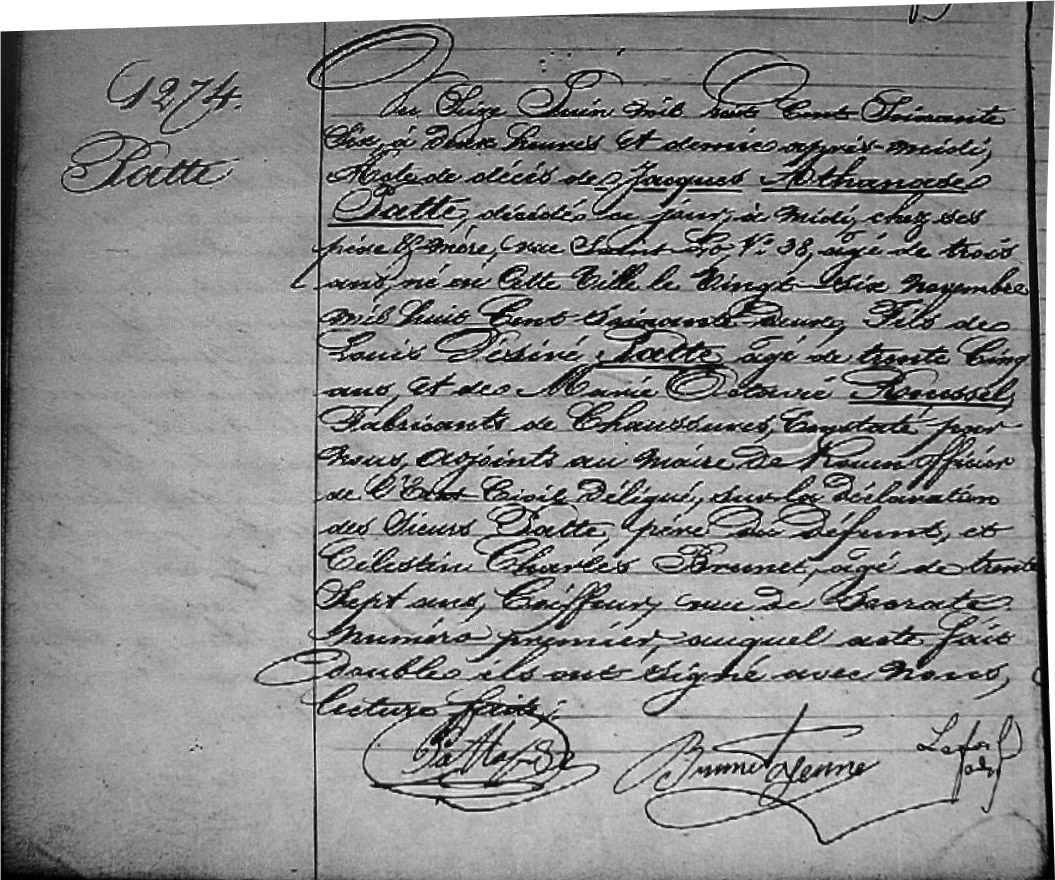 1274.
Patte
Du Seize Juin mil huit Cent Soixante
Six, à deux heures et demie après-midi,
Acte de décès de Jacques Athanase
Patte, décédé ce jour, à midi, chez ses
père & mère, rue Saint Lo, N° 38, âgé de trois
ans, né en cette Ville le Vingt-Six novembre
mil huit Cent Soixante deux, Fils de
Louis Désiré Patte âgé de trente Cinq
ans, et de Marie Octavie Roussel,
Fabricants de Chaussures, Constaté par
Nous, adjoint au maire de Rouen officier
de l'Etat Civil délégué, sur la déclaration
des Sieurs Patte, père du défunt, et
Célestin Charles Brunet, âgé de trente
Sept ans, Coiffeur, rue de Socrate
numéro premier, auquel acte fait
double ils ont signé avec Nous,
lecture faite;
Patte
Brunet Jeune